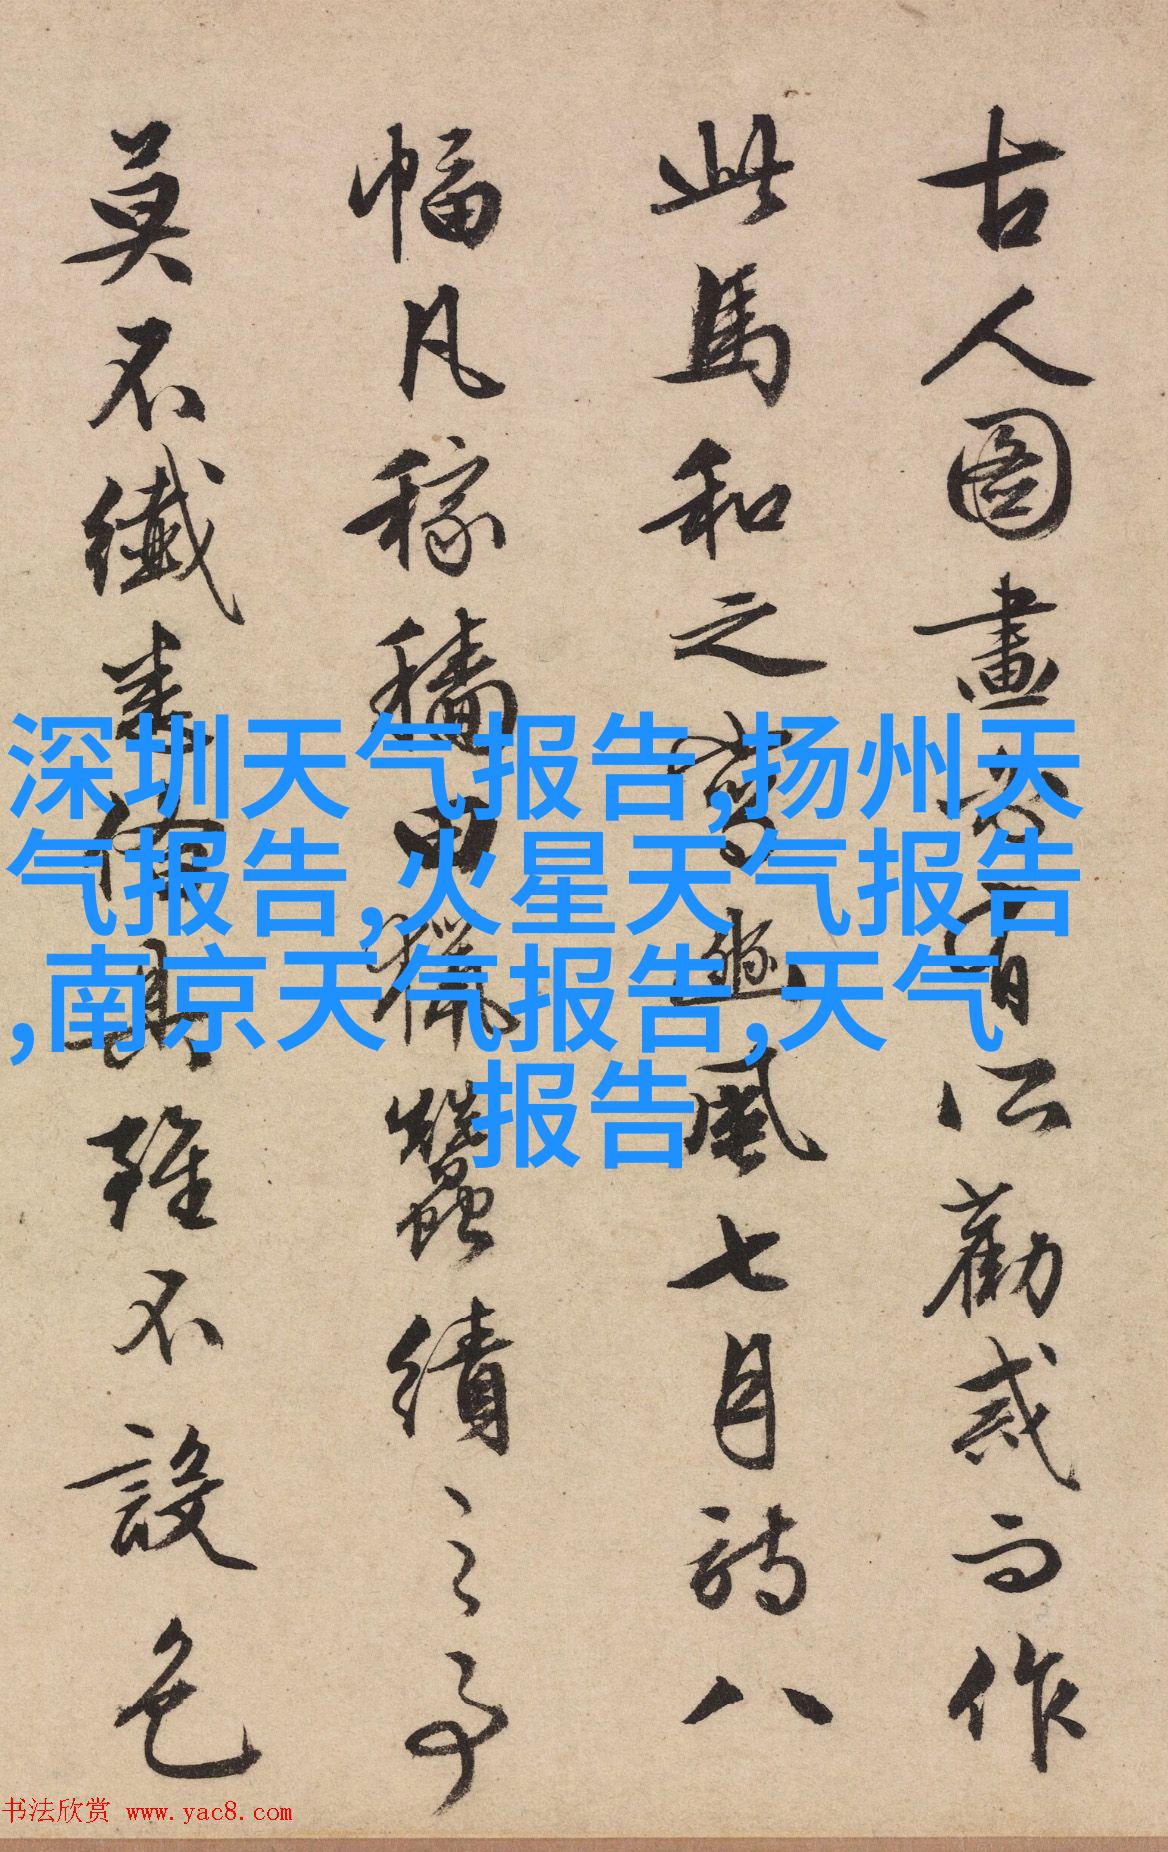 古人圖畫必有所勸戒而作
此馬和之寫豳風七月詩八
幅凡稼穡田獵蠶績之事
莫不纖悉備具雖不設色
深圳天气报告,扬州天
气报告,火星天气报告
,南京天气报告,天气
报告
书法欣赏 www.yac8.com